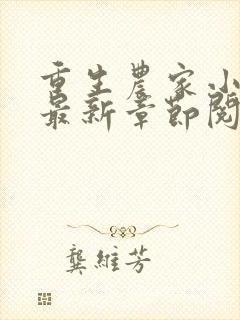 重生農家小
最新章節閱
龔維芳